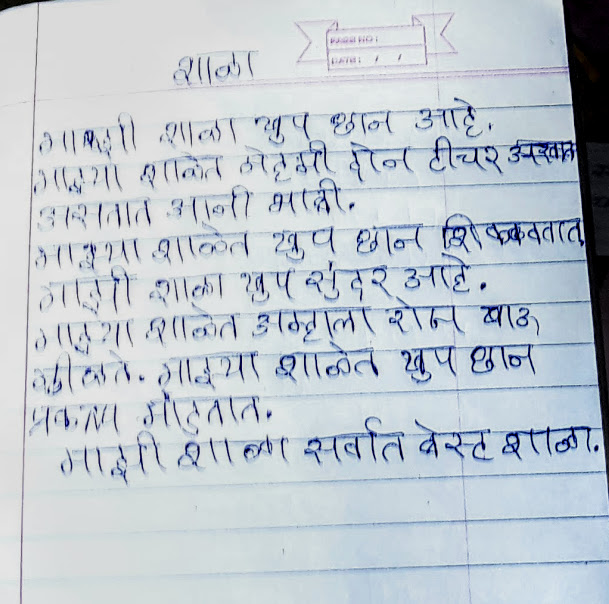 PAGE NO:
DATE: / /
शाळा
माझी शाळा खुप छान आहे.
माझ्या शाळेत नेहमी दोन टीचर
असतात आनी भाकी.
माझ्या शाळेत खुप छान शिकवतात.
माझी शाळा खुप सुंदर आहे.
माझ्या शाळेत अम्हाला रोज खाऊ
मीळते. माझ्या शाळेत खुप छान
माझी शाळा सर्वात बेस्ट शाळा.